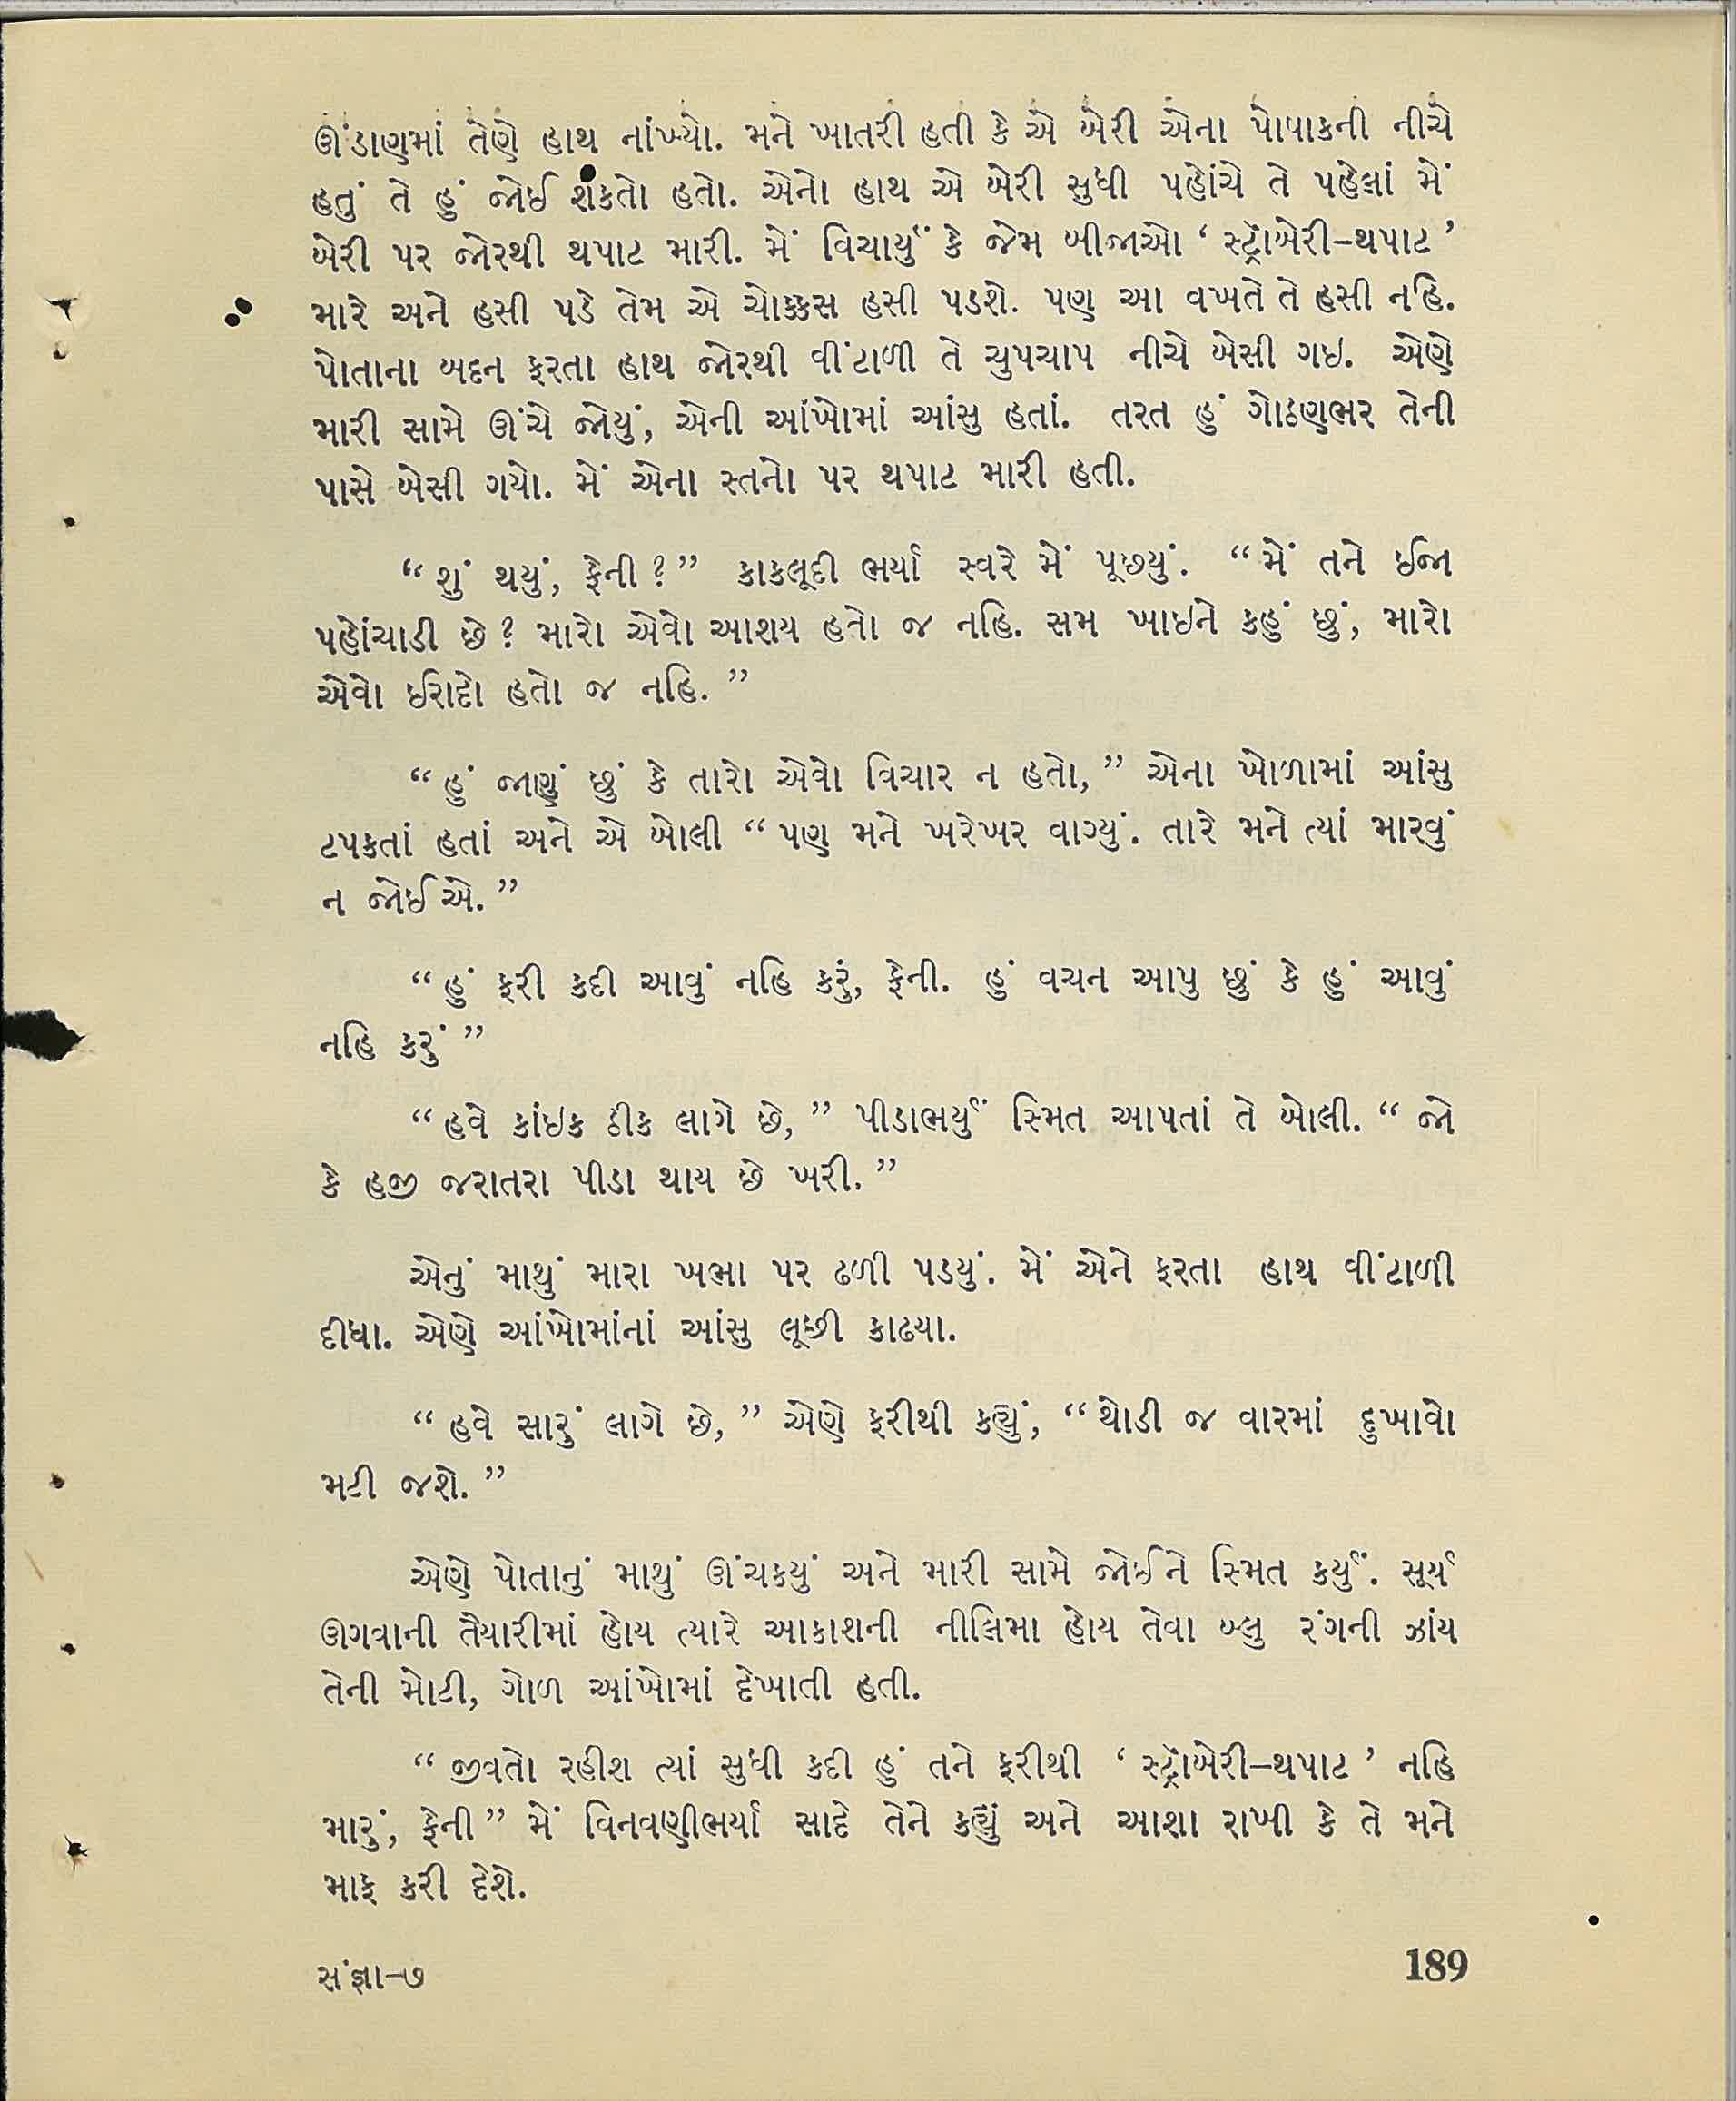 ઊંડાણમાં તેણે હાથ નાંખ્યો. મને ખાતરી હતી કે એ બેરી એના પોષાકની નીચે
હતું તે હું જોઈ શકતો હતો. એનો હાથ એ બેરી સુધી પહોંચે તે પહેલાં મેં
બેરી પર જોરથી થપાટ મારી. મેં વિચાર્યું કે જેમ બીજાઓ ‘ સ્ટ્રૉબેરી–થપાટ ’
મારે અને હસી પડે તેમ એ ચોક્કસ હસી પડશે. પણ આ વખતે તે હસી નહિ.
પોતાના બદન ફરતા હાથ જોરથી વીંટાળી તે ચુપચાપ નીચે બેસી ગઇ. એણે
મારી સામે ઊંચે જોયું, એની આંખોમાં આંસુ હતાં. તરત હું ગોઠણભર તેની
પાસે બેસી ગયો. મેં એના સ્તનો પર થપાટ મારી હતી.
“ શું થયું, ફેની ? ” કાકલૂદી ભર્યા સ્વરે મેં પૂછ્યું. “ મેં તને ઈજા
પહોંચાડી છે ? મારો એવો આશય હતો જ નહિ. સમ ખાઇને કહું છું, મારો
એવો ઈરાદો હતો જ નહિ. ”
“ હું જાણું છું કે તારો એવો વિચાર ન હતો, ” એના ખોળામાં આંસુ
ટપકતાં હતાં અને એ બોલી “ પણ મને ખરેખર વાગ્યું. તારે મને ત્યાં મારવું
ન જોઈએ. ”
“ હું ફરી કદી આવું નહિ કરું, ફેની. હું વચન આપુ છું કે હું આવું
નહિ કરું ”
“ હવે કાંઇક ઠીક લાગે છે, ” પીડાભર્યું સ્મિત આપતાં તે બોલી. “ જો
કે હજી જરાતરા પીડા થાય છે ખરી. ”
એનું માથું મારા ખભા પર ઢળી પડયું. મેં એને ફરતા હાથ વીંટાળી
દીધા. એણે આંખોમાંનાં આંસુ લૂછી કાઢયા.
“ હવે સારું લાગે છે, ” એણે ફરીથી કહ્યું, “ થોડી જ વારમાં દુખાવો
મટી જશે. ”
એણે પોતાનું માથું ઊંચકયું અને મારી સામે જોઈને સ્મિત કર્યું. સૂર્ય
ઊગવાની તૈયારીમાં હોય ત્યારે આકાશની નીલિમા હોય તેવા બ્લુ રંગની ઝાંય
તેની મોટી, ગોળ આંખોમાં દેખાતી હતી.
“ જીવતો રહીશ ત્યાં સુધી કદી હું તને ફરીથી ‘ સ્ટ્રૉબેરી–થપાટ ’ નહિ
મારું, ફેની ” મેં વિનવણીભર્યા સાદે તેને કહ્યું અને આશા રાખી કે તે મને
માફ કરી દેશે.
સંજ્ઞા–૭
189